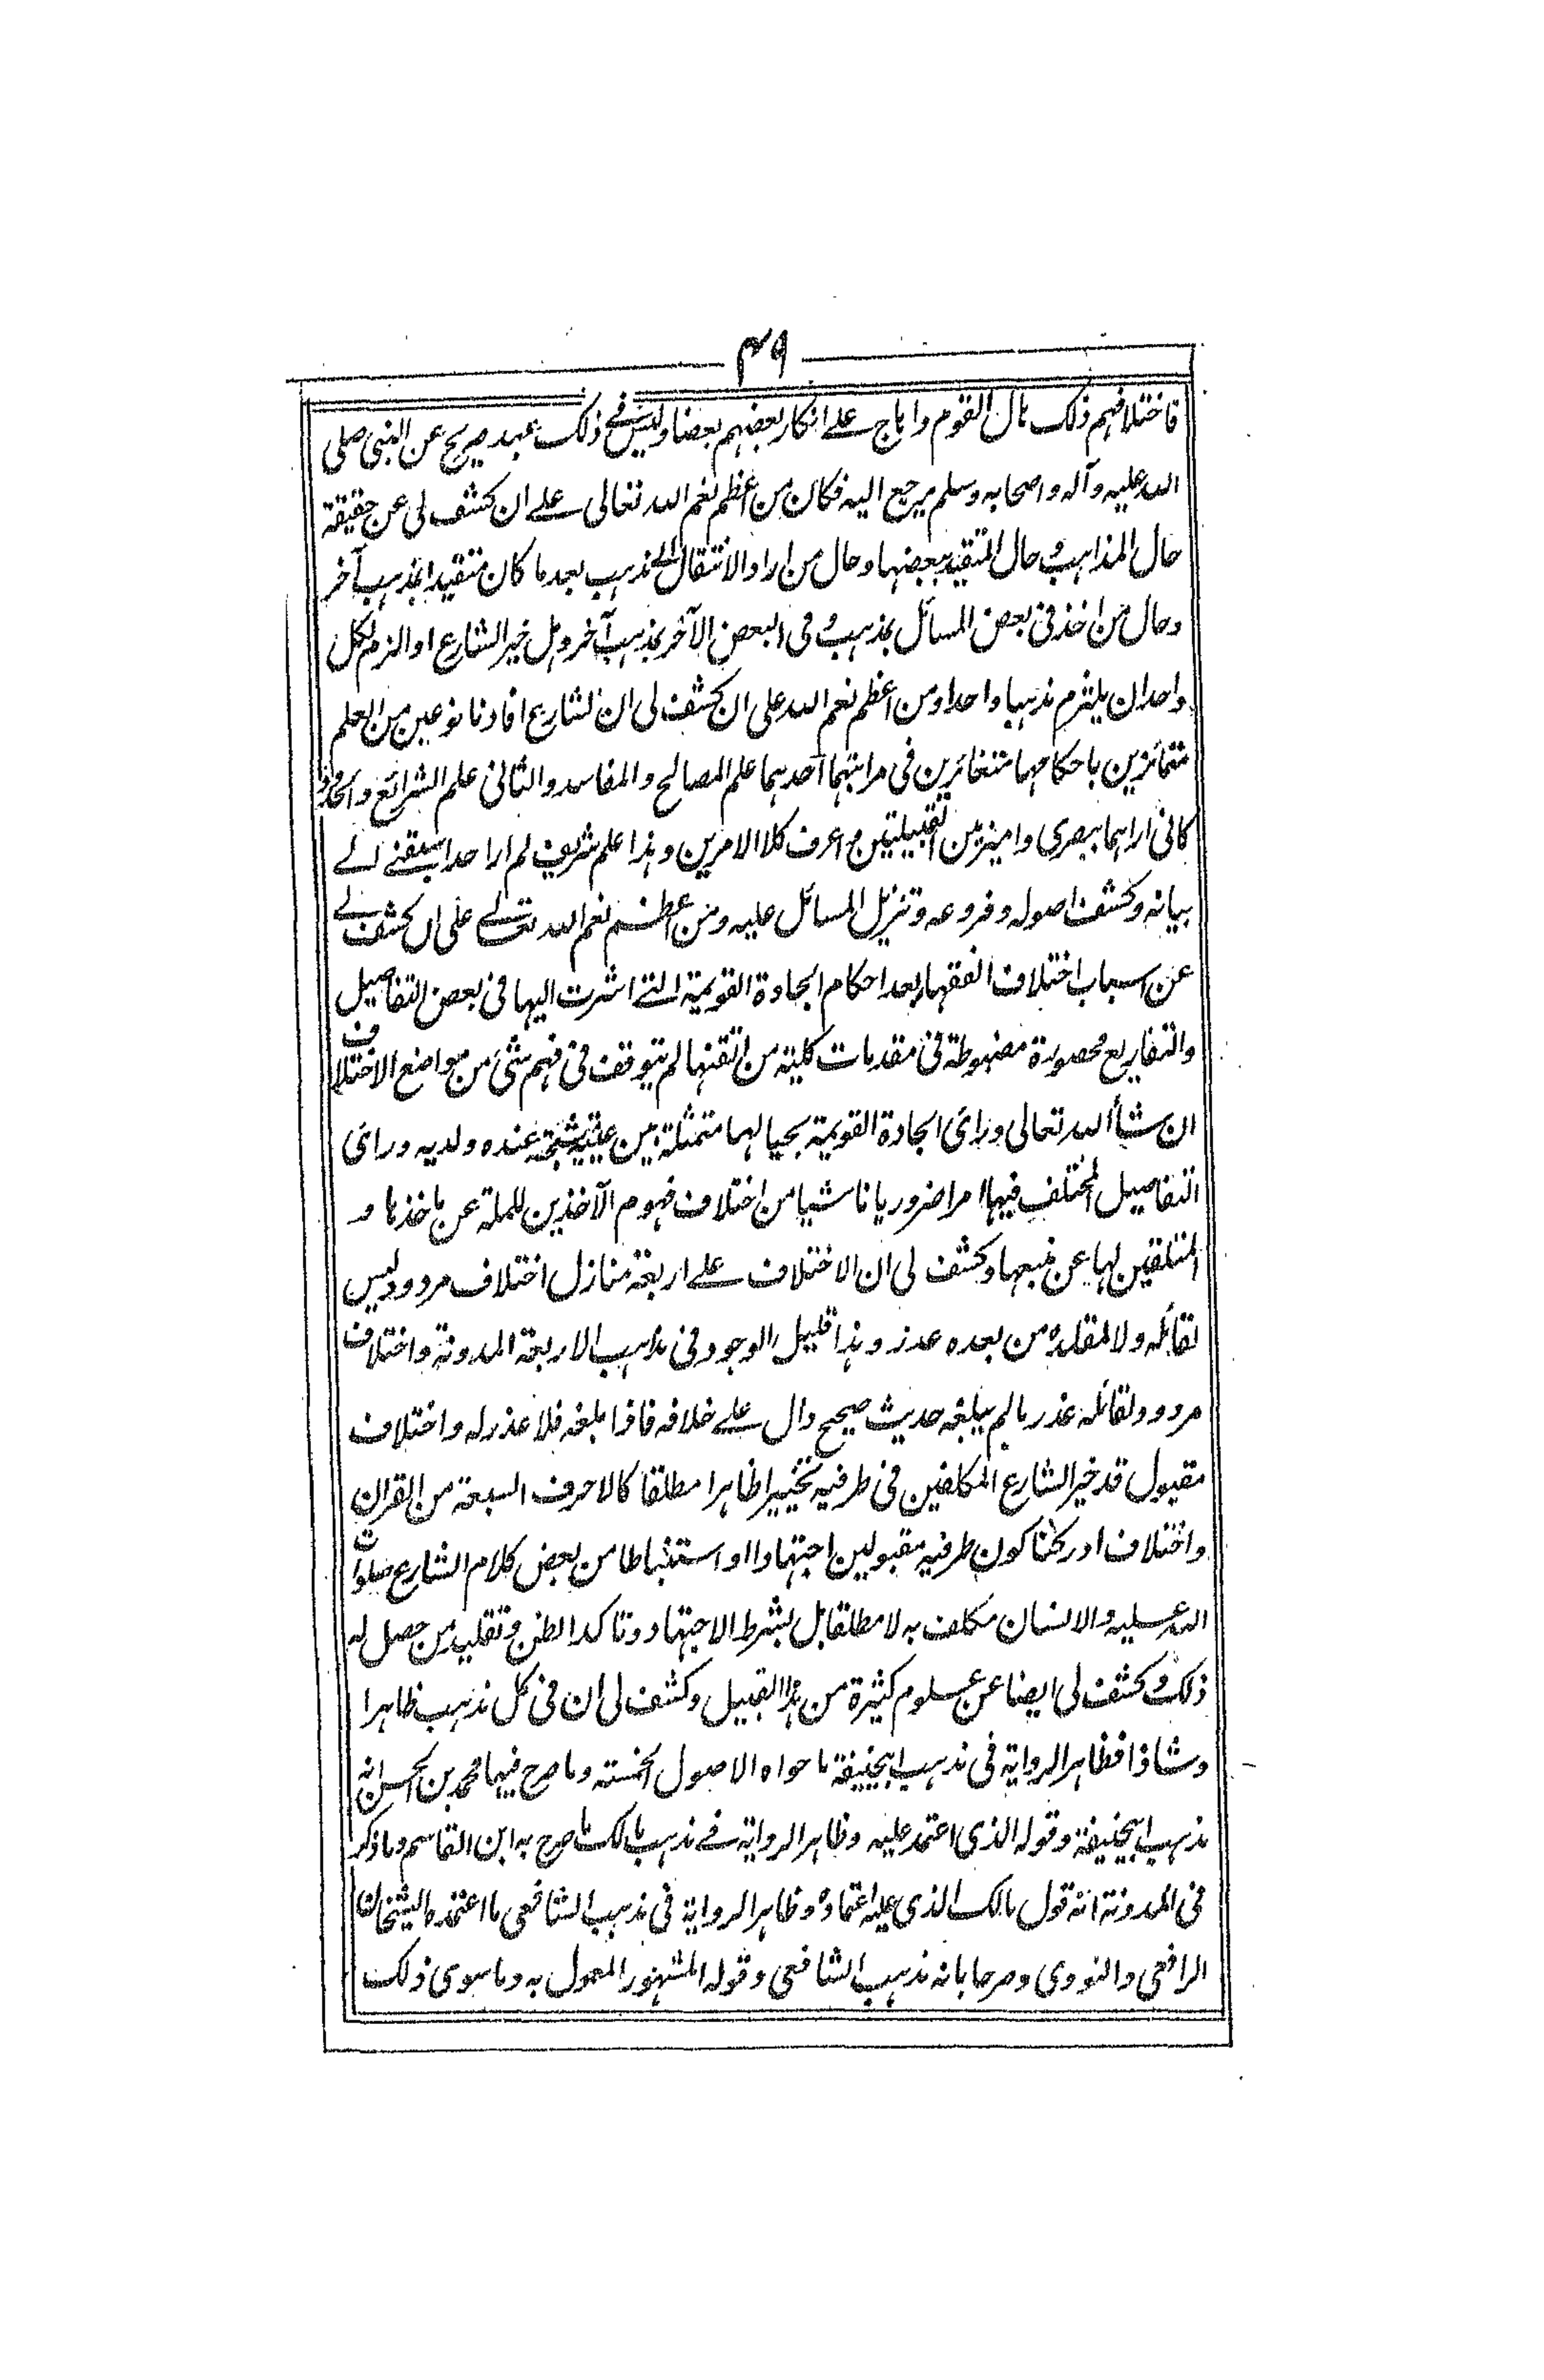 ۴۹
فاختلافهم ذلك نال القوم واباح على انكار بعضهم بعضا وليس فى ذلك عهد صريح عن النبى صلى
الله عليه وآله واصحابه وسلم يرجع اليه فكان من اعظم نعم الله تعالى على ان كشف لى عن حقيقة
حال المذاهب وحال المتقيد ببعضها وحال من اراد الانتقال الى مذهب بعد ما كان متقيدا بمذهب آخر
وحال من اخذ فى بعض المسائل بمذهب وفى البعض الآخر بمذهب آخر وهل خير الشارع او الزم لكل
واحد ان يلتزم مذهبا واحدا ومن اعظم نعم الله على ان كشف لى ان الشارع افادنا نوعين من العلم
متمائزين باحكامهما متغائرين فى مراتبهما احدهما علم المصالح والمفاسد والثانى علم الشرائع والحدود
كانى اراهما ببصرى واميز بين القبيلتين واعرف كلا الامرين وهذا علم شريف لم ار احدا سبقنى الى
بيانه وكشف اصوله وفروعه وتنزيل المسائل عليه ومن اعظم نعم الله تعالى على ان كشف لى
عن اسباب اختلاف الفقهاء بعد احكام الجادة القويمة التى اشرت اليها فى بعض التفاصيل
والتفاريع محصورة مضبوطة فى مقدمات كلية من اتقنها لم يتوقف فى فهم شئ من مواضع الاختلاف
ان شاء الله تعالى ورائ الجادة القويمة بحيالها متمثلة بين عينيه شبحة عنده ولديه ورائ
التفاصيل المختلف فيها امرا ضروريا ناشيا من اختلاف فهوم الآخذين للملة عن ماخذها و
المتلقين لها عن منبعها وكشف لى ان الاختلاف على اربعة منازل اختلاف مردود ليس
لقائله ولا لمقلده من بعده عذر وهذا قليل الوجود فى مذاهب الاربعة المدونة واختلاف
مردود ولقائله عذر ما لم يبلغه حديث صحيح دال على خلافه فاذا بلغه فلا عذر له واختلاف
مقبول قد خير الشارع المكلفين فى طرفيه تخييرا ظاهرا مطلقا كالاحرف السبعة من القران
واختلاف ادركنا كون طرفيه مقبولين اجتهادا او استنباطا من بعض كلام الشارع صلوات
الله عليه والانسان مكلف به لا مطلقا بل بشرط الاجتهاد وتاكد الظن وتقليد من حصل له
ذلك وكشف لى ايضا عن علوم كثيرة من هذا القبيل وكشف لى ان فى كل مذهب ظاهرا
وشاذا فظاهر الرواية فى مذهب ابيحنيفة ما حواه الاصول الخمسة وما صرح فيها محمد بن الحسن انه
مذهب ابيحنيفة وقوله الذى اعتمد عليه وظاهر الرواية فى مذهب مالك ما صرح به ابن القاسم وما ذكر
فى المدونة انه قول مالك الذى عليه اعتماده وظاهر الرواية فى مذهب الشافعى ما اعتمده الشيخان
الرافعى والنووى وصرحا بانه مذهب الشافعى وقوله المشهور المعمول به وما سوى ذلك